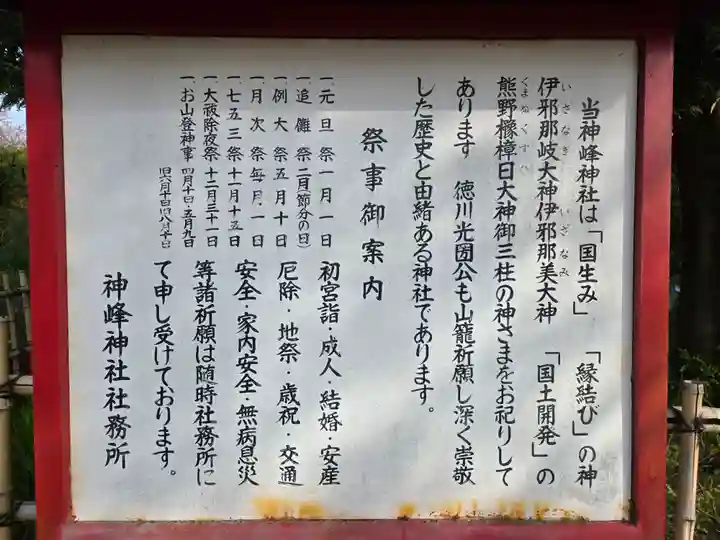 当神峰神社は「国生み」「縁結び」の神
伊邪那岐大神伊邪那美大神「国土開発」の
いさなぎ いざなみ
熊野櫲樟日大神御三柱の神さまをお祀りして
くまぬくすび
あります 徳川光圀公も山籠祈願し深く崇敬
した歴史と由緒ある神社であります。
祭事御案内
一、元旦祭 一月一日
一、追儺祭 二月(節分の日)
一、例大祭 五月十日
一、月次祭 毎月一日
一、七五三祭 十一月十五日
一、大祓除夜祭 十二月三十一日
一、お山登神事 四月十日・五月九日
旧六月十日・旧八月十日
初宮詣・成人・結婚・安産
厄除・地祭・歳祝・交通
安全・家内安全・無病息災
等諸祈願は随時社務所に
て申し受けております。
神峰神社社務所